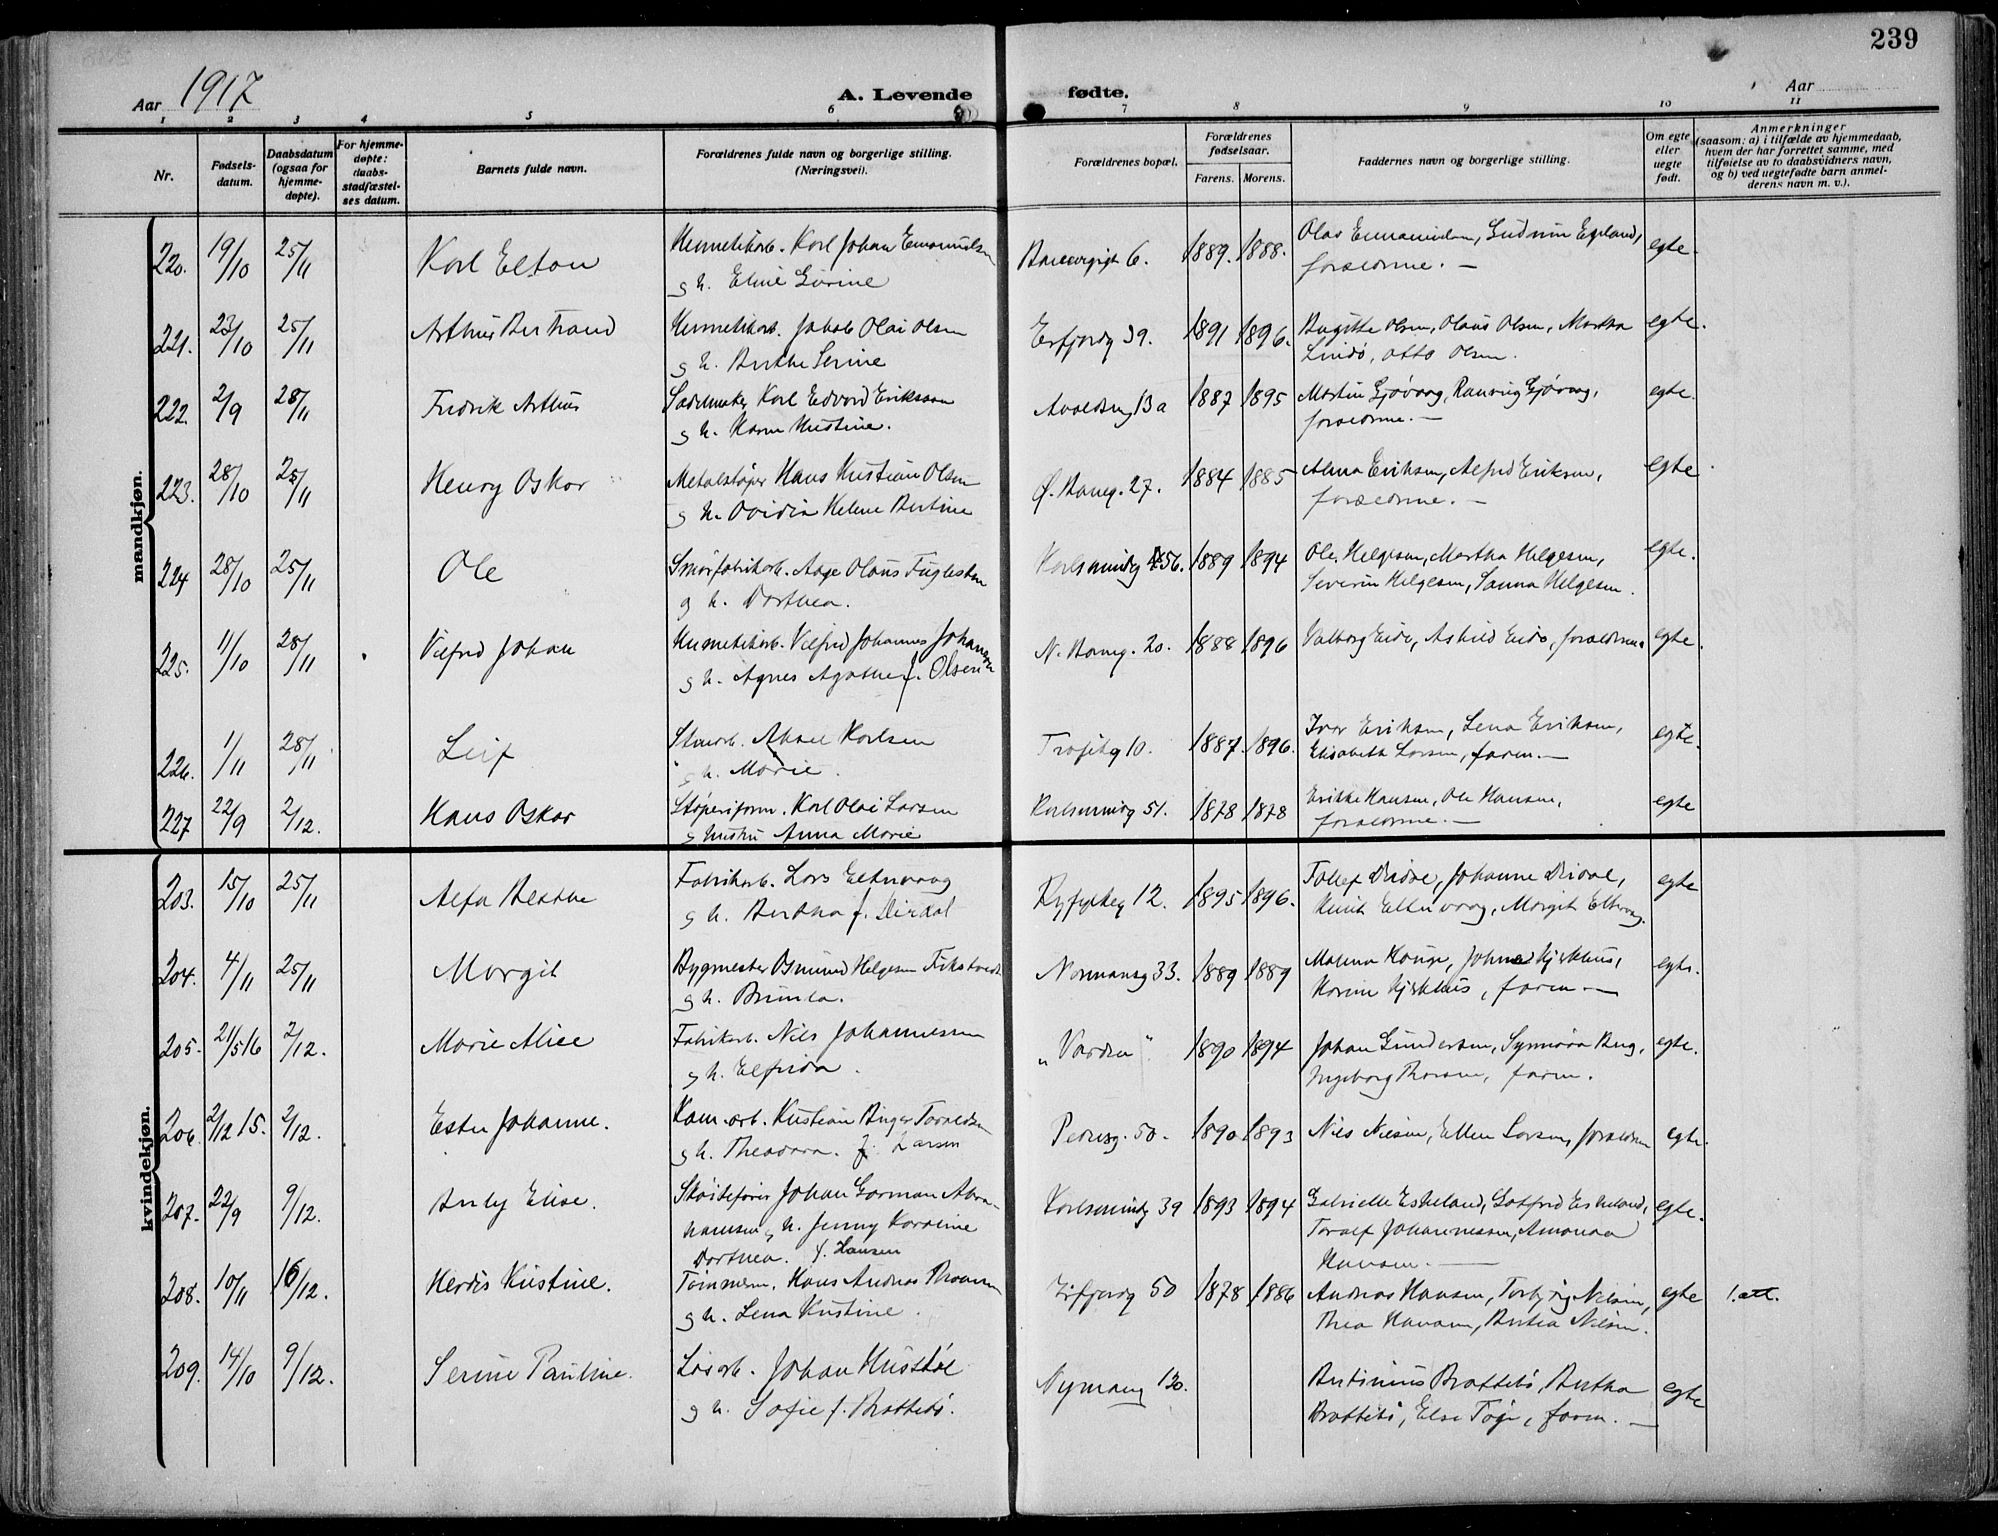 239
Aar 1917
A. Levende fødte.
Aar
1 2 3 4 5 6 7 8 9 10 11
Nr.
Fødsels-
datum.
Daabsdatum
(ogsaa for
hjemme-
døpte).
For hjemme-
døpte:
daabs-
stadfæstel-
ses datum.
Barnets fulde navn.
Forældrenes fulde navn og borgerlige stilling.
(Næringsvei).
Forældrenes bopæl.
Forældrenes
fødselsaar.
Farens. Morens.
Faddernes navn og borgerlige stilling.
Om egte
eller
uegte
født.
Anmerkninger
(saasom: a) i tilfælde av hjemmedaab,
hvem der har forrettet samme, med
tilføielse av to daabsvidners navn,
og b) ved uegtefødte barn anmel-
derens navn m. v.).
mandkjøn.
220. 19/10 25/11 Karl Elton Hermetikarb. Karl Johan Emanuelsen 6. 1889. 1888. Olav Emanuelsen, Gudrun Egeland, egte.
g h. Eline Gurine forældrene. —
221. 23/10 25/11 Arthur Bertrand Hermetikarb. Jakob Olai Olsen Erfjordg 39. 1891 1896. Birgitte Olsen, Olaus Olsen, Martha egte.
g h. Berthe Serine Lindø, Otto Olsen.
222. 2/9 28/11 Fredrik Arthur Sadelmaker Karl Edvard Eriksson Avaldsng 13a 1887 1895 Martin Gjøvaag, Ranveig Gjøvaag, egte.
g h. Karen Kristine. forældrene. —
223. 28/10 25/11 Henry Oskar Metalstøper Hans Kristian Olsen Ø. Baneg. 27. 1884 1885 Alma Eriksen, Alfred Eriksen, egte
g h. Ovidia Helene Bertine forældrene. —
224 28/10 25/11 Ole Smørfabrikarb. Aage Olaus Fuglestein Karlsmindeg 56. 1889 1894 Ole Helgesen, Martha Helgesen, egte.
g h. Dorthea. Severin Helgesen, Sanna Helgesen.
225. 11/10 28/11 Vilfred Johan Hermetikarb. Vilfred Johannes Johansen N. Baneg. 20. 1888 1896 Valborg Eide, Astrid Eide, forældrene egte.
g h. Agnes Agathe f. Olsen
226. 1/11 28/11 Leif Stenarb. Aksel Karlsen 10. 1887. 1896. Ivar Eriksen, Lena Eriksen, egte.
g h. Marie. Elisabeth Larsen, faren. —
227 22/9 2/12. Hans Oskar Støperiform. Karl Olai Larsen Karlsmindeg 51. 1878 1878 Erikke Hansen, Ole Hansen, egte
g hustru Anna Marie forældrene. —
kvindekjøn.
203. 15/10 25/11 Alfa Fabrikarb. Lars Eltervaag Ryfylkeg 12. 1895 1896. Tollef Dirdal, Johanne Dirdal, egte
g h. Bertha f. Dirdal Eltervaag, Margit Eltervaag.
204. 4/11 25/11 Margit Bygmester Osmund Helgesen Normansg 33. 1889 1889 Malena Hauge, Johan Kjerkhus, egte.
g h. Karine Kjerkhus, faren —
205. 21/5 16 2/12. Marie Alice Fabrikarb. Nils Johannessen „Varden" 1890 1894 Johan Gundersen, Synnøva Berg, egte.
g h. Elfrida. Ingeborg Thorsen, faren.
206. 2/12 15. 2/12. Ester Johanne. Kom. arb. Kristian Birger Toraldsen Pedersg. 50. 1890 1893 Nils Nilsen, Ellen Larsen, forældrene egte.
g h. Theodora. f. Larsen
207. 22/9 9/12. Elise. Skøitefører Johan Gorman Abra- Karlsmindeg 39 1893 1894 Gabrielle Eskeland, Gotfred Eskeland, egte.
hamsen, g h. Jenny Karoline Toralf Johannessen, Amanda
Dorthea. f. Hansen Hansen. —
208. 10/11 16/12. Herdis Kristine. Tømmerm. Hans Andreas Erfjordg 50 1878 1886 Andreas Hansen, Torbjørg Nilsen, egte 1. att.
g h. Lena Kristine Thea Hansen, Bertea Nilsen.
209. 14/10 9/12. Serine Pauline. Løsarb. Johan Husstøl Nymansg 130. Bertinius Brattebø, Bertha egte
g h. Sofie f. Brattebø. Brattebø, Else Tøge, faren. —